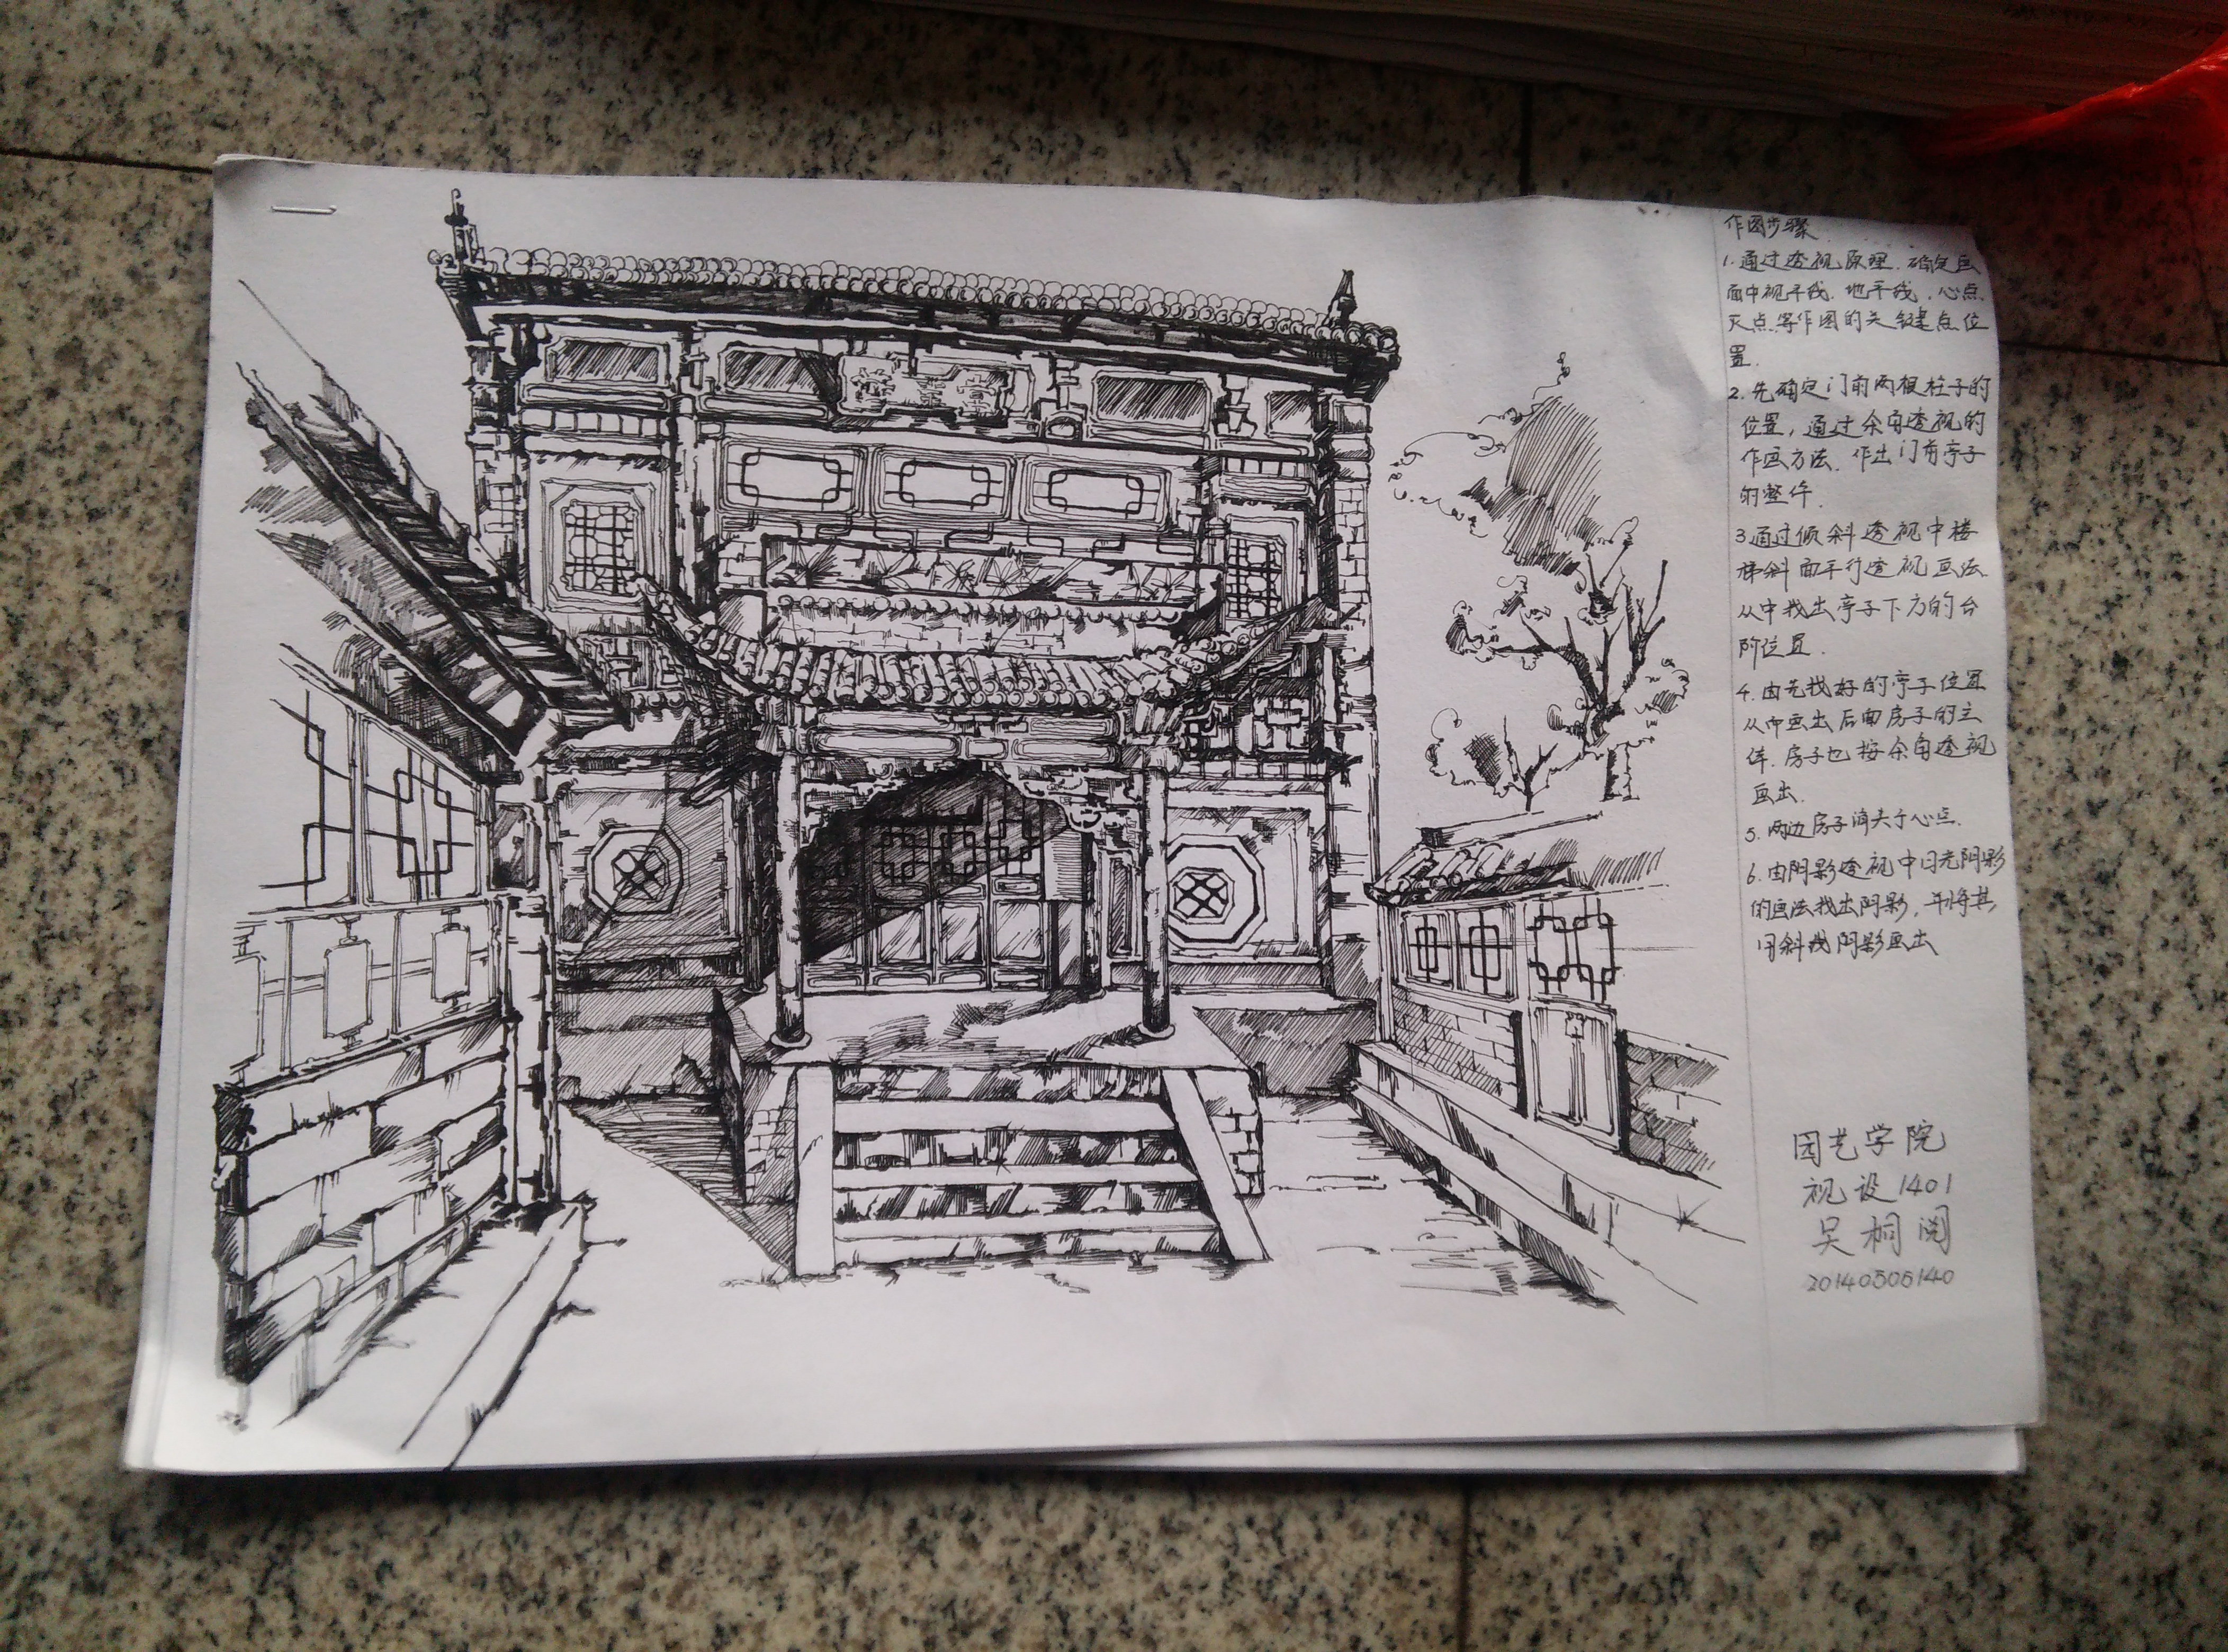 作图步骤
1.通过透视原理.确定画
面中视平线.地平线.心点.
灭点.等作图的关键点位
置.
2.先确定门前两根柱子的
位置,通过余角透视的
作画方法.作出门前亭子
的整体.
3.通过倾斜透视中楼
梯斜面平行透视画法
从中找出亭子下方的台
阶位置.
4.由先找好的亭子位置
从中画出后面房子的主
体.房子也按余角透视
画出.
5.两边房子消失于心点.
6.由阴影透视中日光阴影
的画法找出阴影,并将其
用斜线阴影画出
园艺学院
视设1401
吴桐阅
20140506140